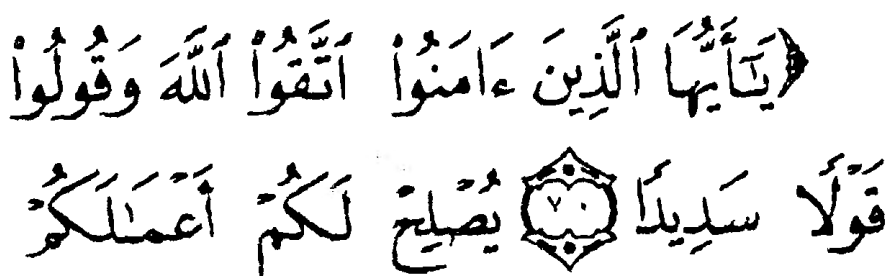 ﴿يَـٰٓأَيُّهَا ٱلَّذِينَ ءَامَنُوا۟ ٱتَّقُوا۟ ٱللَّهَ وَقُولُوا۟
قَوْلًا سَدِيدًا ۝٧٠ يُصْلِحْ لَكُمْ أَعْمَـٰلَكُمْ